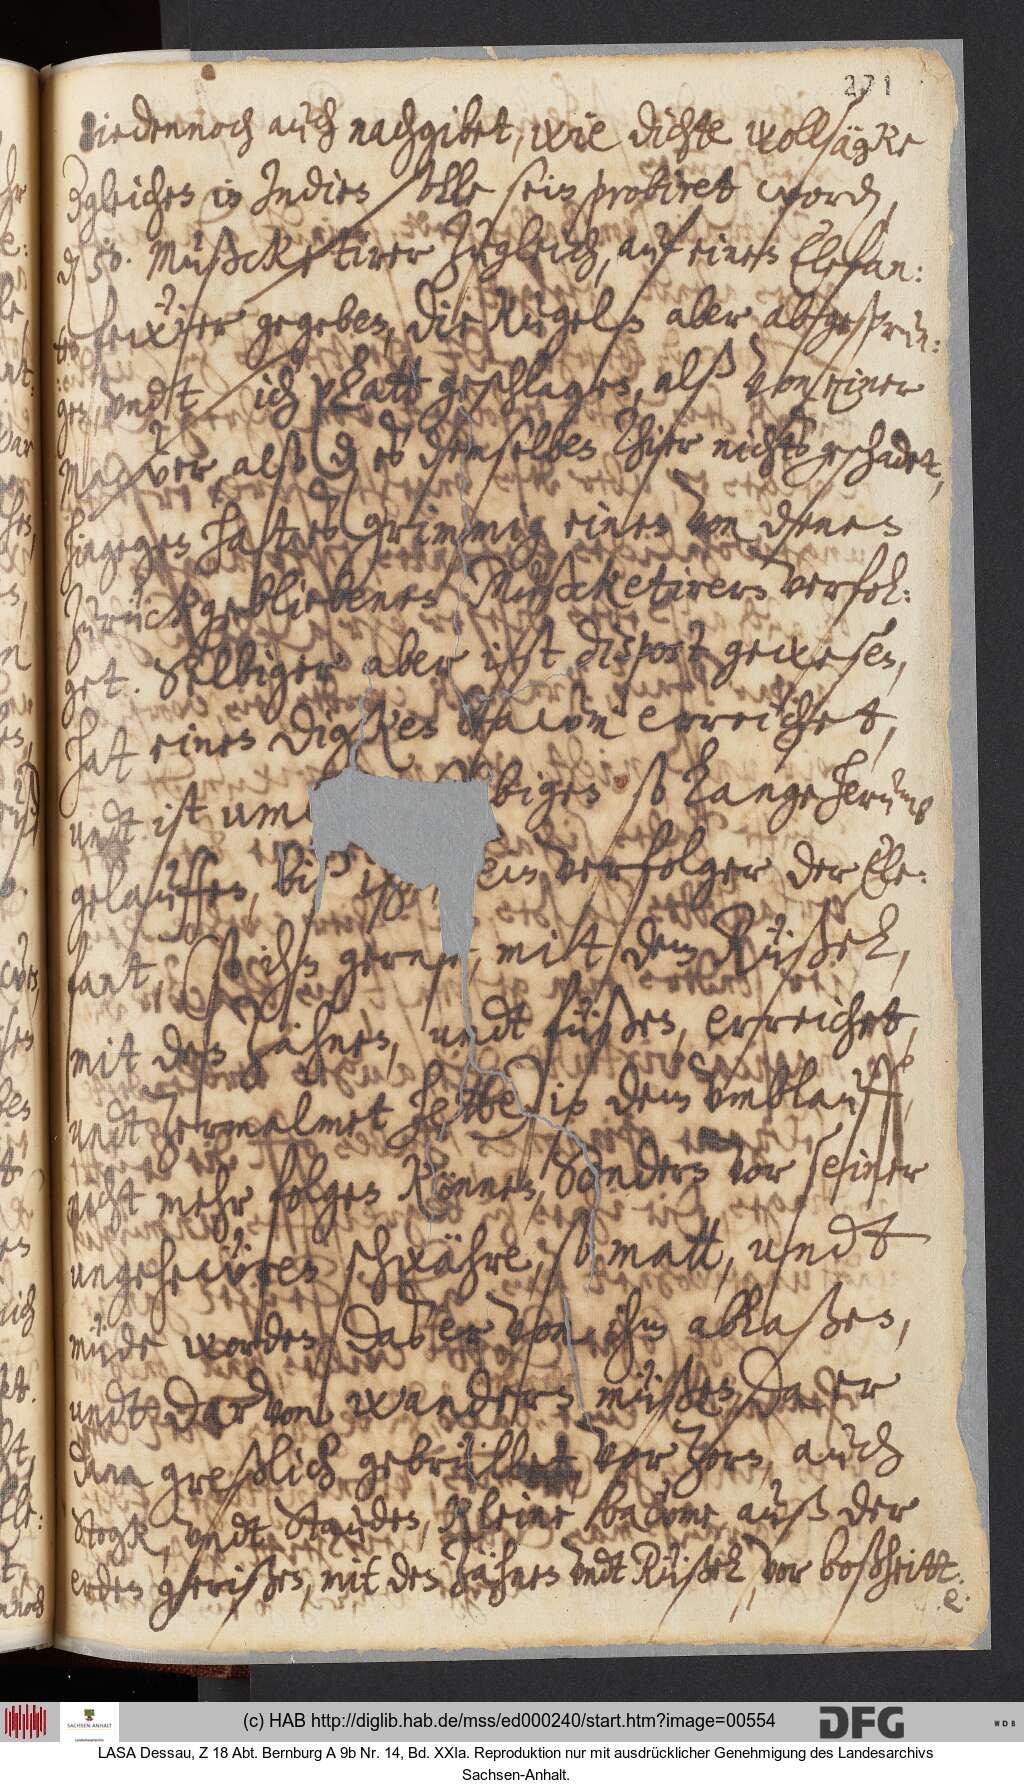 271
iedennoch auch nachgibet, wie dichte wollsägke
dgleichen in Indien solle sein probiret worden,
d 50. Mußcketirer zugleich, auf einen Elefan:
ten feuer gegeben, die Kugeln aber abgesprun:
gen, undt sich platt geschlagen, alß von einer
Mauer, alß d es demselben Thier nichts geschadet,
hingegen hatt es grimmig einen von denen
zurückgebliebenen Mußcketirern verfol:
get. Selbiger aber ist dispost gewesen,
hat einen digken baum erreichet,
undt ist umb biges so lange herumb
gelauffen, biß sein verfolger der Ele:
fant, so ihn gerne, mitt dem Rüßel,
mit den Zähnen, undt füßen, erreichet,
undt zermalmet hette, in dem umblauff,
nicht mehr folgen können, sondern vor seiner
ungeheuren schwähre, so matt, undt
müde worden, daß er von ihm ablaßen,
undt darvon wandern müßen, da er
dann greßlich gebrüllet vor zorn, auch
Stögk, undt Stauden, kleine baume, auß der
erden gerißen, mit den Zähnen undt Rüßel, vor boßheitt.
e.
(c) HAB http://diglib.hab.de/mss/ed000240/start.htm?image=00554
SACHSEN-ANHALT
DFG
WDB
LASA Dessau, Z 18 Abt. Bernburg A 9b Nr. 14, Bd. XXIa. Reproduktion nur mit ausdrücklicher Genehmigung des Landesarchivs
Sachsen-Anhalt.